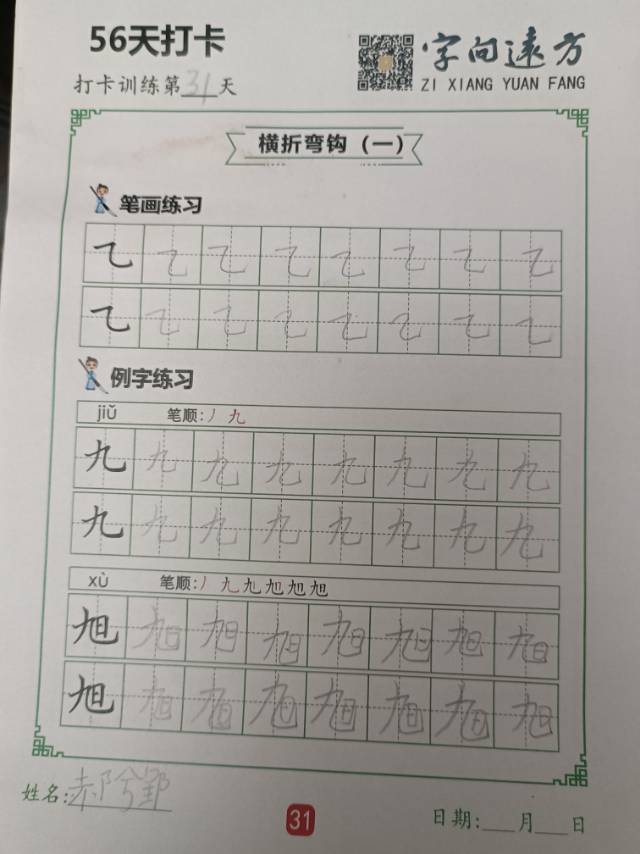 56天打卡
字向远方
打卡训练第31天
ZI XIANG YUAN FANG
横折弯钩（一）
笔画练习
乙 乙 乙 乙 乙 乙 乙 乙
乙 乙 乙 乙 乙 乙 乙 乙
例字练习
jiǔ 笔顺:丿 九
九 九 九 九 九 九 九 九
九 九 九 九 九 九 九 九
xù 笔顺:丿 九 九 旭 旭 旭
旭 旭 旭 旭 旭 旭 旭 旭
旭 旭 旭 旭 旭 旭 旭 旭
姓名:郝
31
日期:___月___日